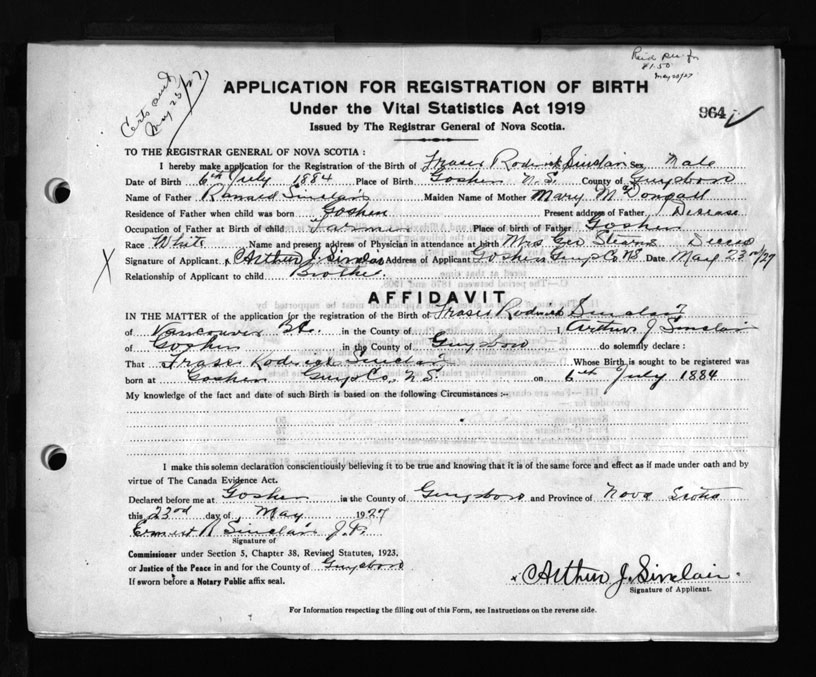 Certs sent
May 25/27
Paid
$1.50
May 20/27
APPLICATION FOR REGISTRATION OF BIRTH
Under the Vital Statistics Act 1919
964
Issued by The Registrar General of Nova Scotia.
TO THE REGISTRAR GENERAL OF NOVA SCOTIA :
I hereby make application for the Registration of the Birth of Fraser Roderick Sinclair Sex Male
Date of Birth 6th July 1884 Place of Birth Goshen N.S. County of Guysboro
Name of Father Ranald Sinclair Maiden Name of Mother Mary McDougall
Residence of Father when child was born Goshen Present address of Father
Occupation of Father at Birth of child Farmer Place of birth of Father Goshen
Race White Name and present address of Physician in attendance at birth Mrs Geo
X Signature of Applicant x Arthur J. Sinclair Address of Applicant Goshen Guys Co NS Date May 23rd/27
Relationship of Applicant to child Brother
AFFIDAVIT
IN THE MATTER of the application for the registration of the Birth of Fraser Roderick Sinclair
of Vancouver B.C. in the County of I, Arthur J. Sinclair
of Goshen in the County of Guysboro do solemnly declare :
That Fraser Roderick Sinclair Whose Birth is sought to be registered was
born at Goshen Guys Co., N.S. on 6th July 1884
My knowledge of the fact and date of such Birth is based on the following Circumstances :-
I make this solemn declaration conscientiously believing it to be true and knowing that it is of the same force and effect as if made under oath and by
virtue of The Canada Evidence Act.
Declared before me at Goshen in the County of Guysboro and Province of Nova Scotia
this 23rd day of May 1927
Ernest R Sinclair J.P.
Signature of
Commissioner under Section 5, Chapter 38, Revised Statutes, 1923,
or Justice of the Peace in and for the County of Guysboro
If sworn before a Notary Public affix seal.
x Arthur J. Sinclair
Signature of Applicant.
For Information respecting the filling out of this Form, see Instructions on the reverse side.